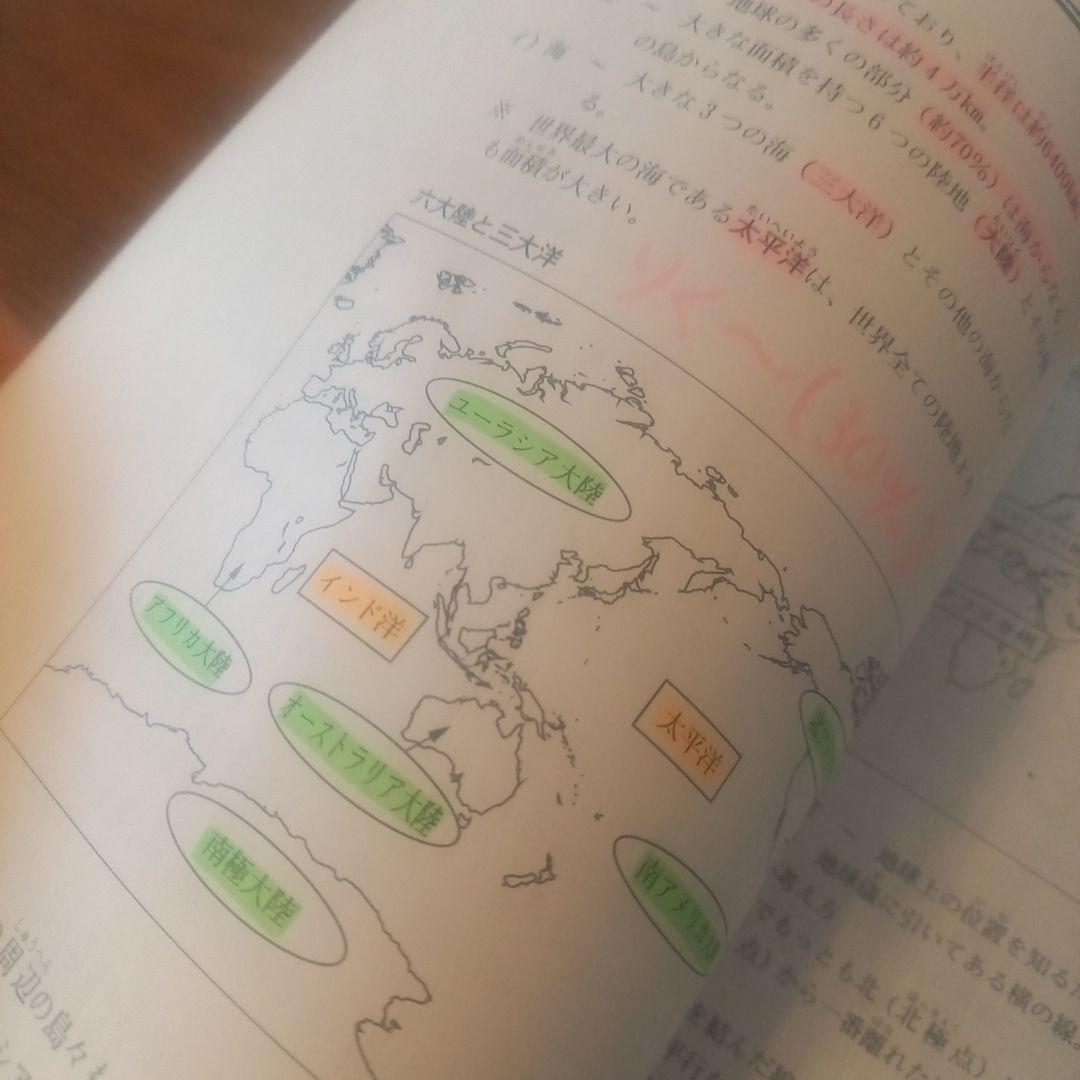 ており、半径は約6400km
の長さは約4万km。
地球の多くの部分(約70%)は海からなる
~ 大きな面積を持つ6つの陸地(大陸)とその
の島からなる。
イ)海 ~ 大きな3つの海(三大洋)とその他の海からな
る。
※ 世界最大の海である太平洋は、世界全ての陸地より
も面積が大きい。
りく~(30%)
六大陸と三大洋
ユーラシア大陸
インド洋
アフリカ大陸
太平洋
オーストラリア大陸
南アメリカ
南極大陸
周辺の島々も
~ 地球上の位置を知るた
地球儀に引いてある横の線。
考え方
でもっとも北(北極点)
点)から一番離れた
を結んだ